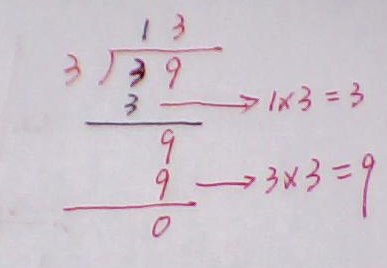 13
3)39
3 → 1×3=3
9
9 → 3×3=9
0